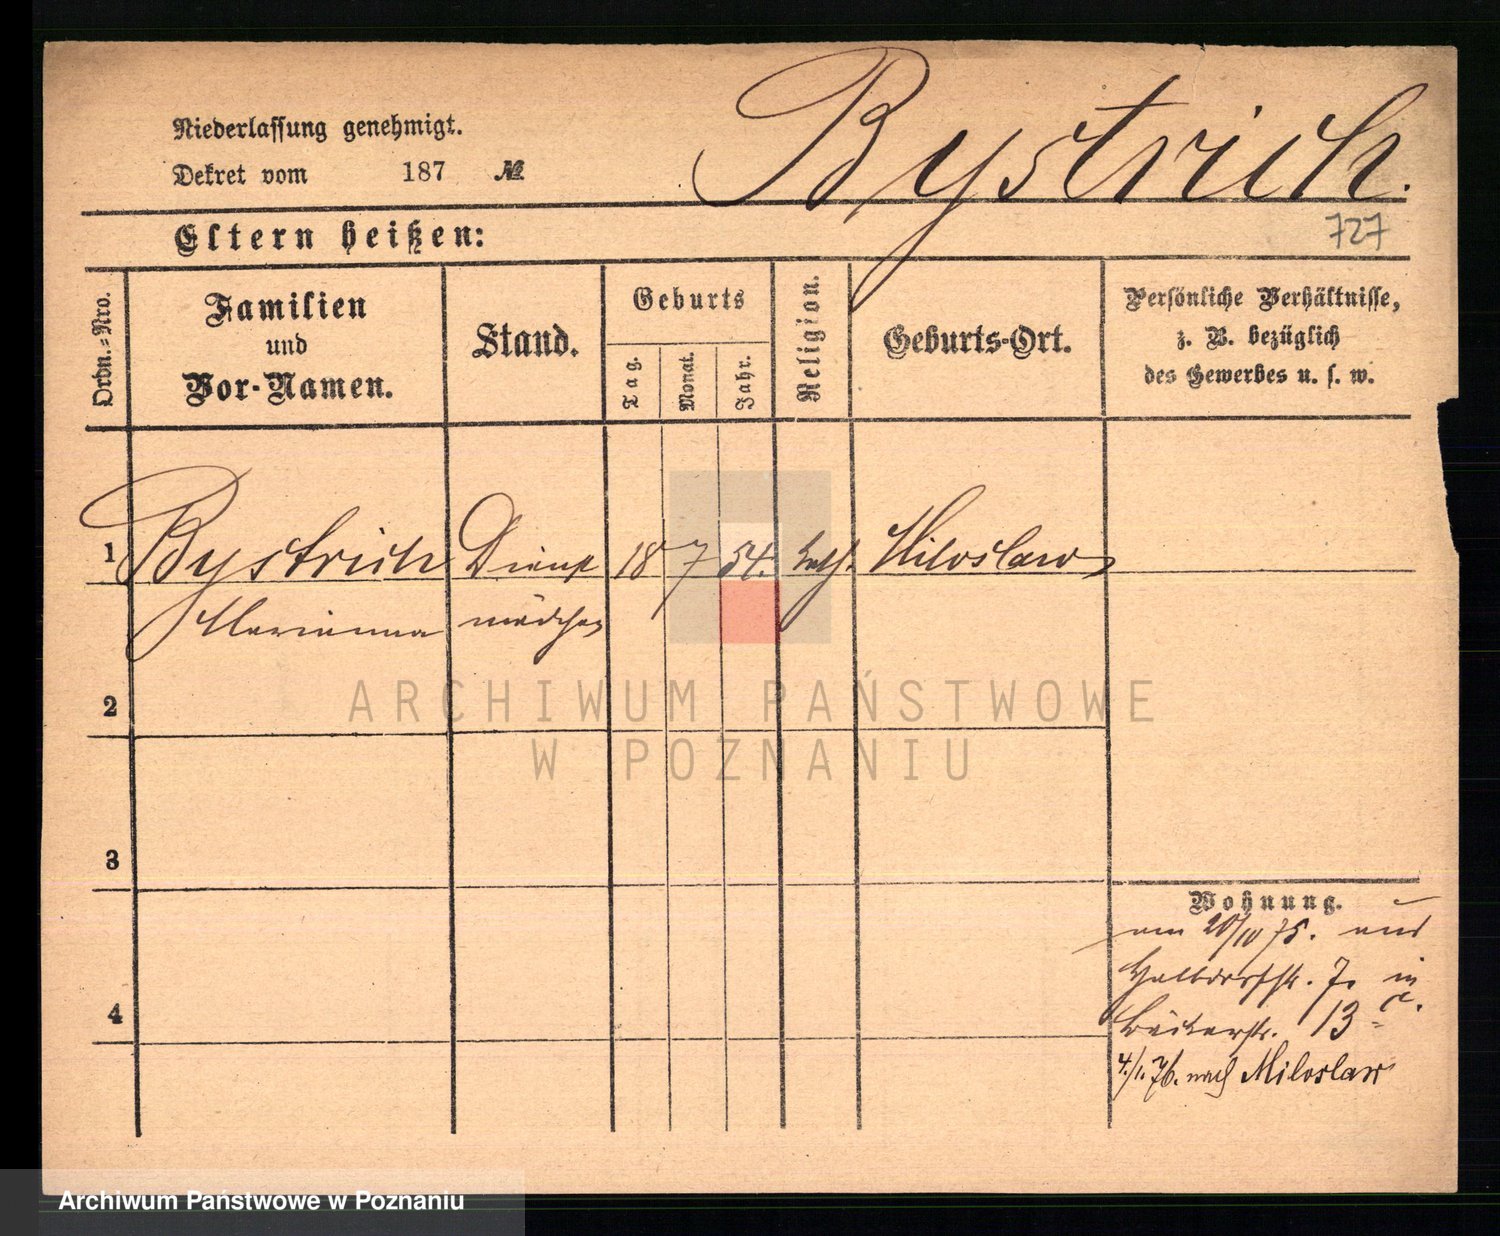 Niederlassung genehmigt.
Dekret vom 187 №
Bystrich.
727
Eltern heißen:
Ordn.-Nro.
Familien
und
Vor-Namen.
Stand.
Geburts
Tag.
Monat.
Jahr.
Religion.
Geburts-Ort.
Persönliche Verhältnisse,
z. B. bezüglich
des Gewerbes u. s. w.
1 Bystrich Dienst 18 7 54. kath. Miloslaw
Marianna mädchen
2
3
4
Wohnung.
am 20/10 75. aus
Halbdorfstr. 7. in
Bäckerstr. 13 a.
4./1. 76. nach Miloslaw
ARCHIWUM PAŃSTWOWE
W POZNANIU
Archiwum Państwowe w Poznaniu